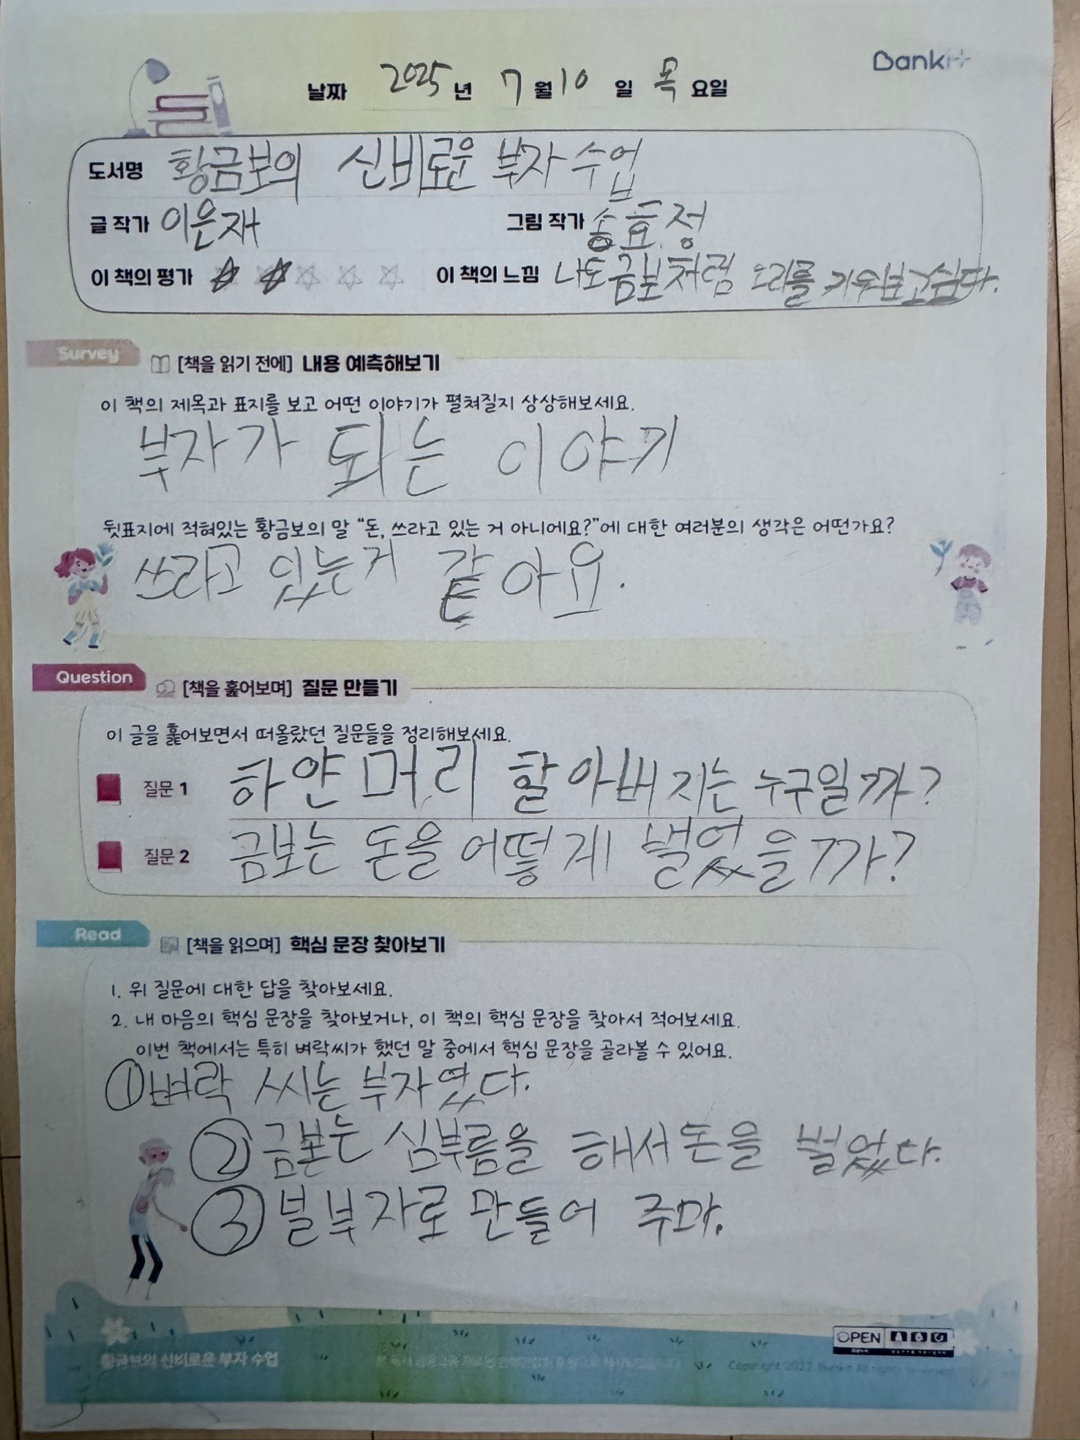 Bankit
날짜 2025 년 7 월 10 일 목 요일
도서명 황금보의 신비로운 부자 수업
글 작가 이은재 그림 작가 송효정
이 책의 평가 이 책의 느낌 나도 금보처럼 오리를 키워보고싶다.
Survey [책을 읽기 전에] 내용 예측해보기
이 책의 제목과 표지를 보고 어떤 이야기가 펼쳐질지 상상해보세요.
부자가 되는 이야기
뒷표지에 적혀있는 황금보의 말 "돈, 쓰라고 있는 거 아니에요?"에 대한 여러분의 생각은 어떤가요?
쓰라고 있는거 같아요.
Question [책을 훑어보며] 질문 만들기
이 글을 훑어보면서 떠올랐던 질문들을 정리해보세요.
질문 1 하얀머리 할아버지는 누구일까?
질문 2 금보는 돈을 어떻게 벌었을까?
Read [책을 읽으며] 핵심 문장 찾아보기
1. 위 질문에 대한 답을 찾아보세요.
2. 내 마음의 핵심 문장을 찾아보거나, 이 책의 핵심 문장을 찾아서 적어보세요.
이번 책에서는 특히 벼락씨가 했던 말 중에서 핵심 문장을 골라볼 수 있어요.
①벼락 씨는 부자였다.
②금본는 심부름을 해서 돈을 벌었다.
③불부자로 만들어 주마.
OPEN
황금보의 신비로운 부자 수업
Copyright 2022. Bankit All rights reserved.